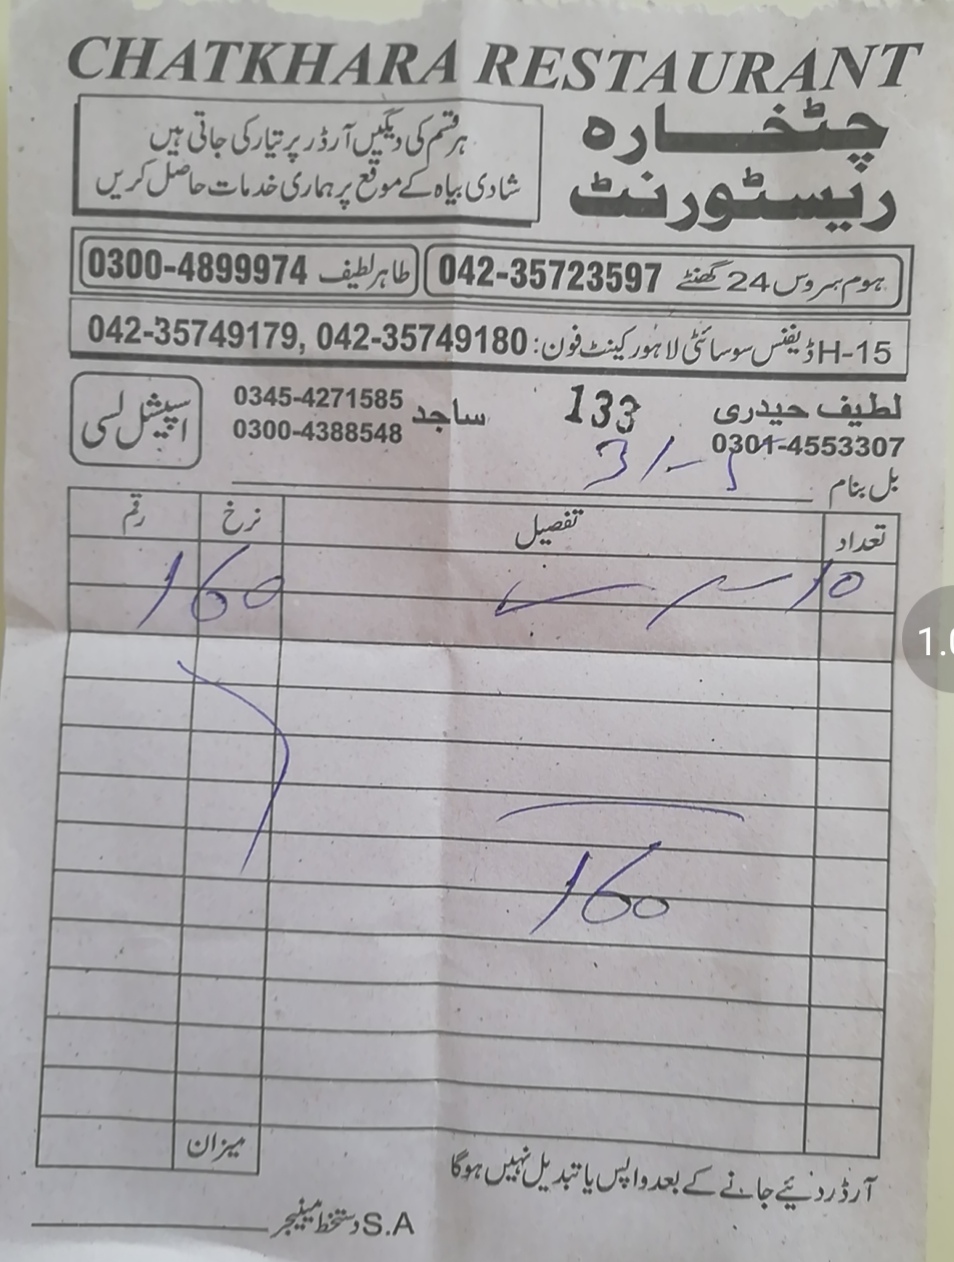 CHATKHARA RESTAURANT
چٹخارہ
ریسٹورنٹ
ہر قسم کی دیگیں آرڈر پر تیار کی جاتی ہیں
شادی بیاہ کے موقع پر ہماری خدمات حاصل کریں
ہوم سروس 24 گھنٹے 042-35723597
طاہر لطیف 0300-4899974
H-15 ڈیفنس سوسائٹی لاہور کینٹ فون: 042-35749180, 042-35749179
لطیف حیدری
0301-4553307
133
ساجد 0345-4271585
0300-4388548
اسپیشل لسی
بل بنام
تعداد تفصیل نرخ رقم
10 160
160
میزان
آرڈر دئیے جانے کے بعد واپس یا تبدیل نہیں ہوگا
S.A دستخط مینیجر
1.0